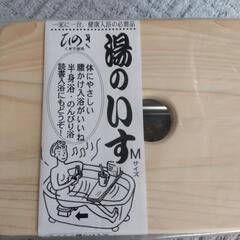 一家に一台、健康入浴の必需品
ひのき
湯のいす
Mサイズ
体にやさしい
腰かけ入浴がいいね
半身浴・のんびり浴
読書入浴にもどうぞ!